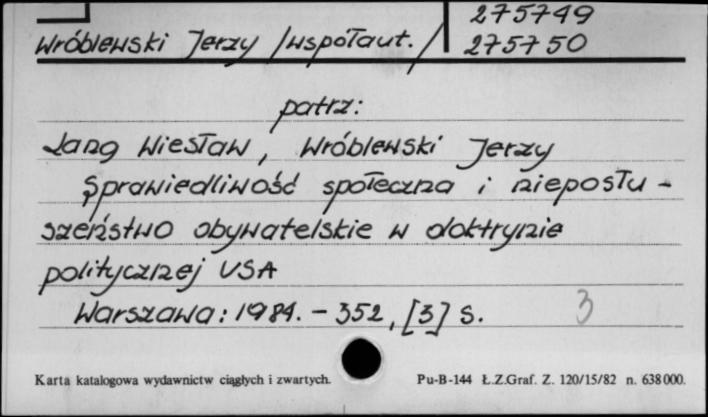 275749
Wróblewski Jerzy /współaut./ 275750
patrz:
Lang Wiesław, Wróblewski Jerzy
Sprawiedliwość społeczna i nieposłu-
szeństwo obywatelskie w doktrynie
politycznej USA
Warszawa: 1984. - 352, [3] s. 3
Karta katalogowa wydawnictw ciągłych i zwartych. Pu-B-144 Ł.Z.Graf. Z. 120/15/82 n. 638000.